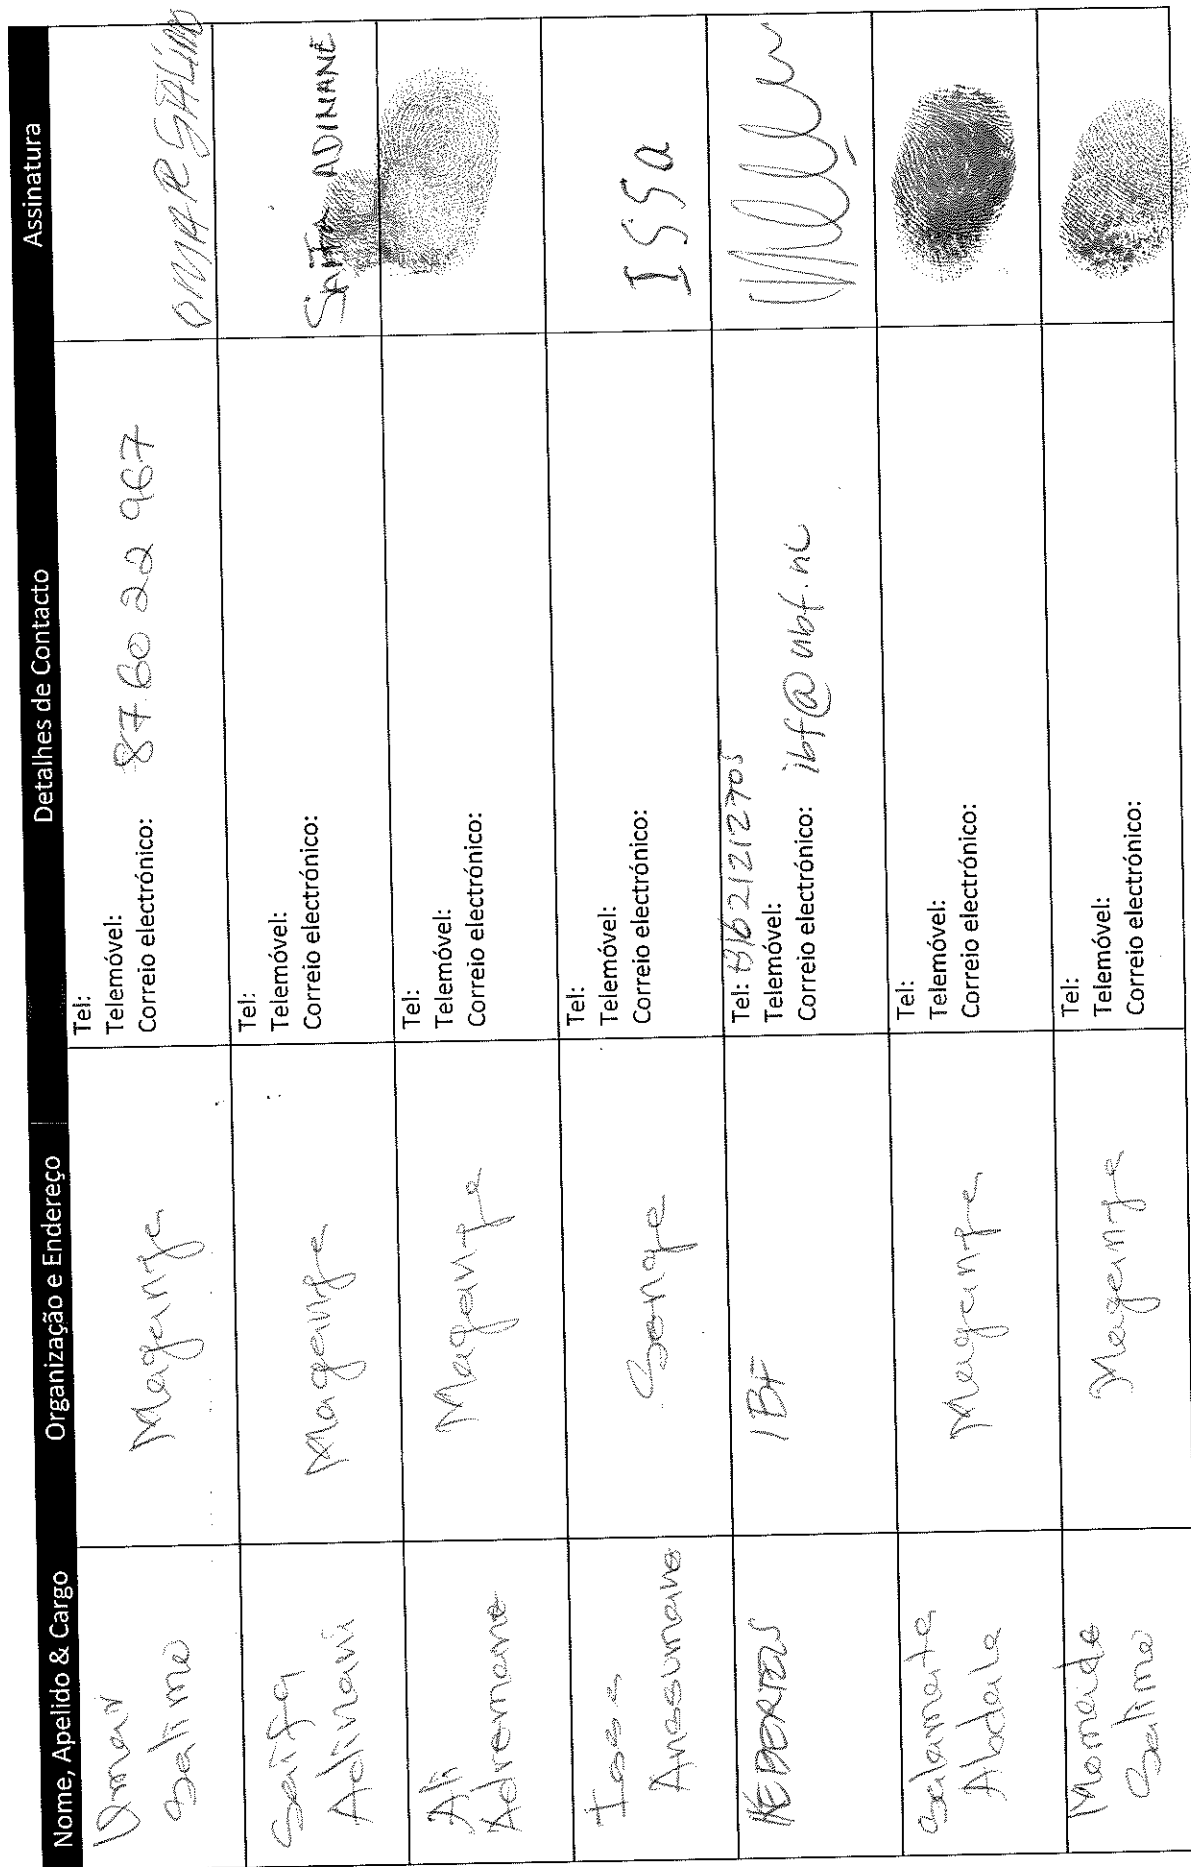 Nome, Apelido & Cargo Organização e Endereço Detalhes de Contacto Assinatura
Omar
Salimo
Maganja
Tel:
Telemóvel:
Correio electrónico: 87.60 22 967
OMAR SALIMO
Saifa
Adinani
Maganja
Tel:
Telemóvel:
Correio electrónico:
SAIFA ADINANE
Ali
Adremane
Maganja
Tel:
Telemóvel:
Correio electrónico:
Issa
Anssumane
Senga
Tel:
Telemóvel:
Correio electrónico:
ISSa
IBF
Tel:
Telemóvel:
Correio electrónico: ibf@ubf.nl
Salamata
Abdala
Maganja
Tel:
Telemóvel:
Correio electrónico:
Momade
Salimo
Maganja
Tel:
Telemóvel:
Correio electrónico: